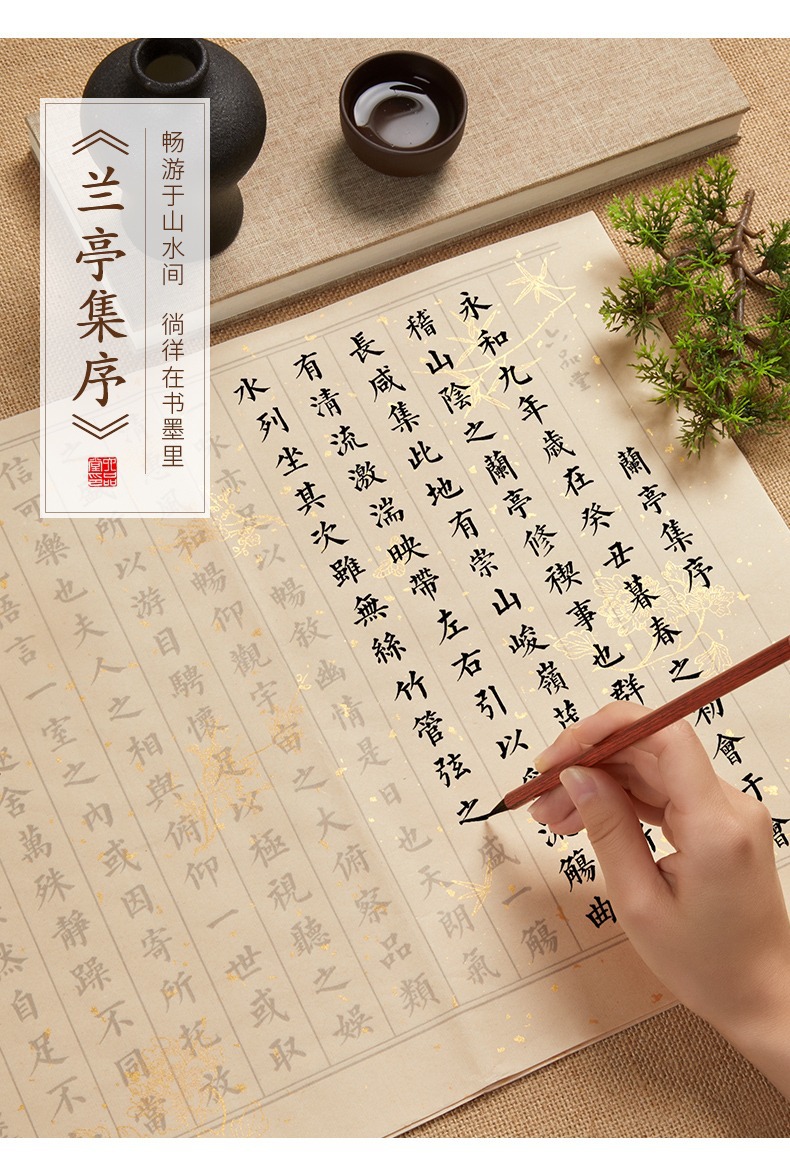 《兰亭集序》
畅游于山水间 徜徉在书墨里
六品堂
蘭亭集序
永和九年歲在癸丑暮春之初會于會
稽山陰之蘭亭修禊事也群
長咸集此地有崇山峻嶺茂
有清流激湍映帶左右引以流觴曲
水列坐其次雖無絲竹管弦之盛一觴
以暢敘幽情是日也天朗氣
和暢仰觀宇宙之大俯察品類
所以游目騁懷足以極視聽之娛
信可樂也夫人之相與俯仰一世或取
言一室之內或因寄所托放
舍萬殊靜躁不同當
然自足不